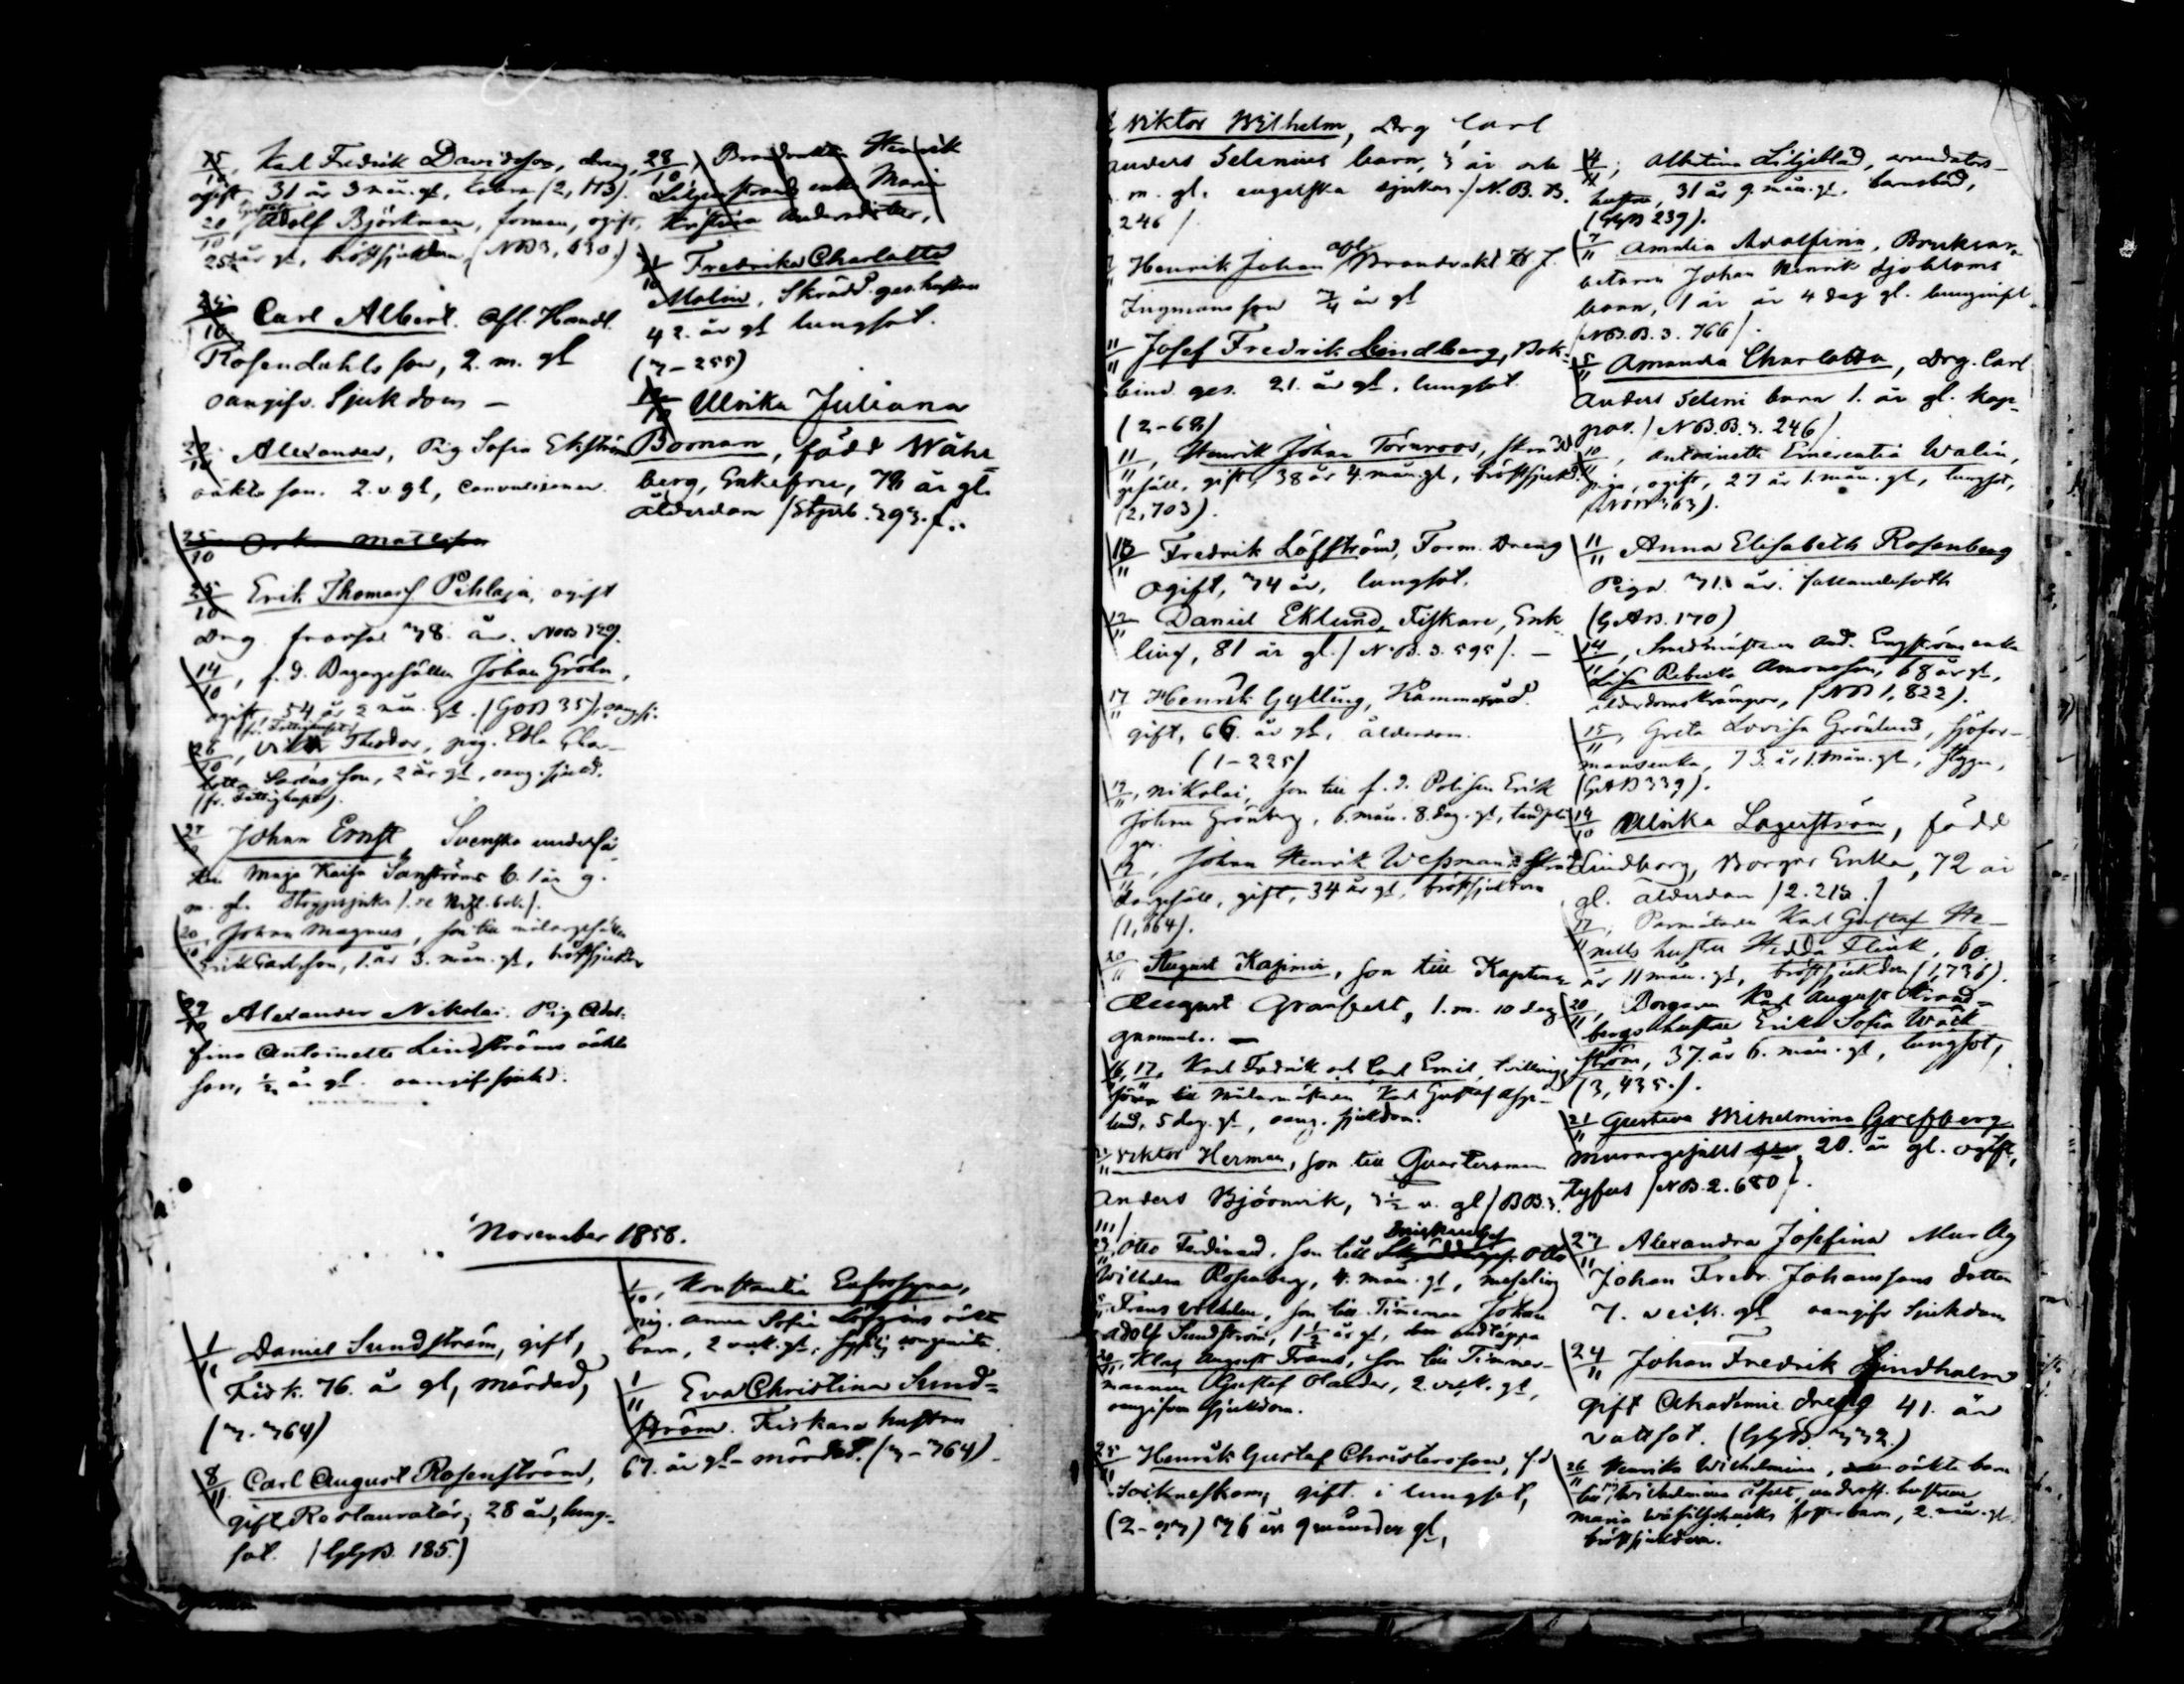 15/10, Karl Fredrik Davidsson, dreng,
ogift 31 år 3 mån. gl, kolera (2,113).
20/10 Adolf Björkman, forman, ogift,
25 år gl, bröstsjukdom (NB 3, 630.)
24/10 Carl Albert. Afl. Handl.
Rosendahls son, 2. m. gl
oangifv. Sjukdom —
20/10 Alexander, Pig Sofia Ekström
oäkta son. 2. v. gl, convulsioner.
25/10 Mattsson
25/10 Erik Thomas Pihlaja, ogift
Drng. 78. år. NBB 129.
14/10, f. d. Johan Grölin,
ogift 54 år 2 mån. gl. (GOB 35), oang. sj.
(fr. Fattighuset)
26/10, Viktor Theodor, pig. Edla Char-
lotta son, 2 år gl, oang. sjukd.
(fr. Fattighuset).
27/10 Johan Ernst, Svenska underså-
ten Maja Kaisa b. 1 år 9.
m. gl.
20/10, Johan Magnus, son till målaregesällen
Erik Carlsson, 1. år 3. mån. gl, bröstsjukdom
29/10 Alexander Nikolai. Pig Adol-
fina Antoinette Lindströms oäkta
son, 1/2 år gl. oangif. sjukd.
28/10, Brandvakten Henrik
Liljestrands enka Maria
Kristina Andersdotter,
11/10 Fredrika Charlotta
Malin, Skrädd. ges. hustru
42. år gl lungsot.
(3-255)
12/10 Ulrika Juliana
Boman, född Wåhl-
berg, Enkefru, 79 år gl.
ålderdom
November 1858.
1/11 Daniel Sundström, gift,
Fisk. 76. år gl, mördad,
(3-364)
8/11 Carl August Rosenström,
gift Restauratör, 28 år, lung-
sot. (GGB. 185.)
1/10, Konstantia Eufrosyna,
pig. Anna Sofia Löfgrens oäkta
barn, 2 veck. gl.
1/11 Eva Christina Sund-
ström. Fiskare hustru
67. år gl - mördad. (3-364)
Viktor Wilhelm, Drg Carl
Anders Selenius barn, 3 år och
m. gl. engelska sjukan. / N. B. B.
246 /
Henrik Johan afl Brandvakt H. J.
Ingmans son 3/4 år gl
11/11 Josef Fredrik Lindberg, Bok-
bind ges. 21. år gl. lungsot.
(2-68)
11/11, Henrik Johan Törnroos, skrädd
gesäll, gift, 38 år 4 mån. gl, bröstsjukd.
(2,703).
13/11 Fredrik Löfström, Form. Dreng
ogift, 34 år, lungsot.
12/11 Daniel Eklund, Fiskare, Enk-
ling, 81 år gl. / N.B. 3. 595 /. —
17/11 Henrik Gylling, Kammarråd.
gift, 66. år gl, ålderdom.
(1-225)
19/11, Nikolai, son till f. d. Polisen Erik
Johan Grönberg, 6. mån. 8. dag. gl,
19/11, Johan Henrik Wessman, Skräd-
daregesäll, gift, 34 år gl, bröstsjukdom
(1,664).
20/11 August Kasimir, son till Kapten
August Granfelt, 1. m. 10 dag
gammal. —
16, 17, Karl Fredrik och Carl Emil, tvilling
söner till Målarmästaren Karl Gustaf Asp-
lund, 5 dag. gl, oang. sjukdom.
Viktor Herman, son till Quartersman
Anders Björnvik, 3 1/2 v. gl / BB. 3.
111 /.
Otto Ferdinand, son till Otto
Wilhelm Rosenberg, 4. mån. gl, messling
Frans Wilhelm, son till Timerman Johan
Adolf Sundström, 1 1/2 år gl, andtäppa
Klas August Frans, son till Timmer-
mannen Gustaf Olander, 2. veck. gl,
oangifven sjukdom.
25/11 Henrik Gustaf Christersson, f. d
Sockneskom, gift. i lungsot,
(2-93) 36 år 9 månader gl,
4/11, Albertina Liljeblad, arendators-
hustru, 31 år 9. mån. gl, barnsbäd,
(GGB 239).
7/11 Amalia Adolfina, Bruksar-
betaren Johan Henrik Sjöbloms
barn, 1 år 4 dag gl. lunginfl.
/ NB. B. 3. 766 /.
5/11 Amanda Charlotta, Drg. Carl
Anders Seleni barn 1. år gl. kop-
por. / NB. B. 3. 246 /
10/11, Antoinette Emerentia Walin,
piga, ogift, 27 år 1. mån. gl, lungsot,
11/11 Anna Elisabeth Rosenberg
Piga 31. år. fallandesoth
(GAB. 170)
14/11, Smedmästaren And. Engströms enka
Lisa Rebecka Amonsson, 68 år gl,
ålderdomskrämpor, (NB 1, 822).
15/11, Greta Lovisa Grönlund, sjöfor-
mansenka, 73. år 1. mån. gl, flygen,
(GAB 339).
14/10 Ulrika Lagerström, född
Lindborg, Borgar Enka, 72 år
gl. ålderdom / 2. 215. /
17/11, Karl Gustaf He-
nells hustru Hedda Flink, 60
år 11 mån. gl, bröstsjukdom (1,736).
20/11, Borgaren Karl August Strand-
bergs hustru Erika Sofia Wäck-
ström, 37. år 6. mån. gl, lungsot,
(3,435.).
21/11 Gustava Wilhelmina Grefberg
Muraregesälls 20. år gl. ogift,
tyfus / NB. 2. 680 /.
23/11 Alexandra Josefina Mur Ag
Johan Fredr. Johanssons dotter
7. veck. gl oangifv Sjukdom
24/11 Johan Fredrik Lindholm
gift Akademie dreng 41. år
vattsot. (GGB 332.)
26/11 Henrika Wilhelmina, oäkta barn
till Wilhelmina hustrun
Maria fosterbarn, 2. mån. gl.
bröstsjukdom.